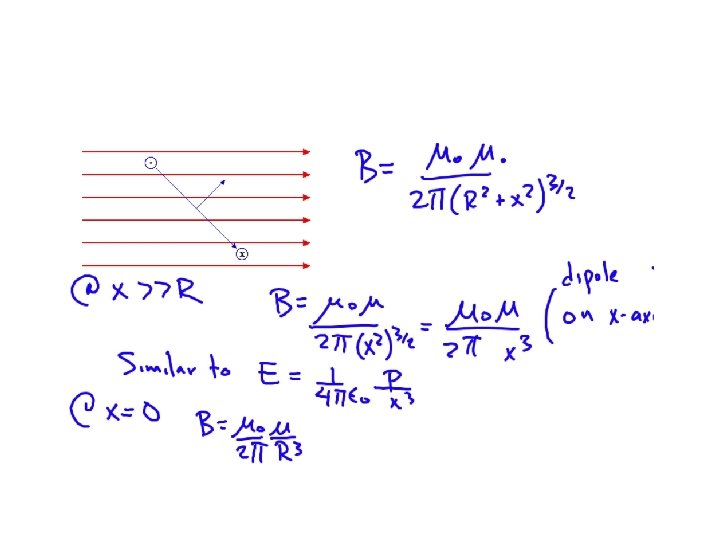 B = μ₀ μ. / 2π(R² + x²)^3/2
x
@ x >> R
B = μ₀ μ / 2π(x²)^3/2 = μ₀ μ / 2π x³ (dipole
on x-ax
Similar to E = 1/4πε₀ P/x³
@ x = 0 B = μ₀/2π μ/R³